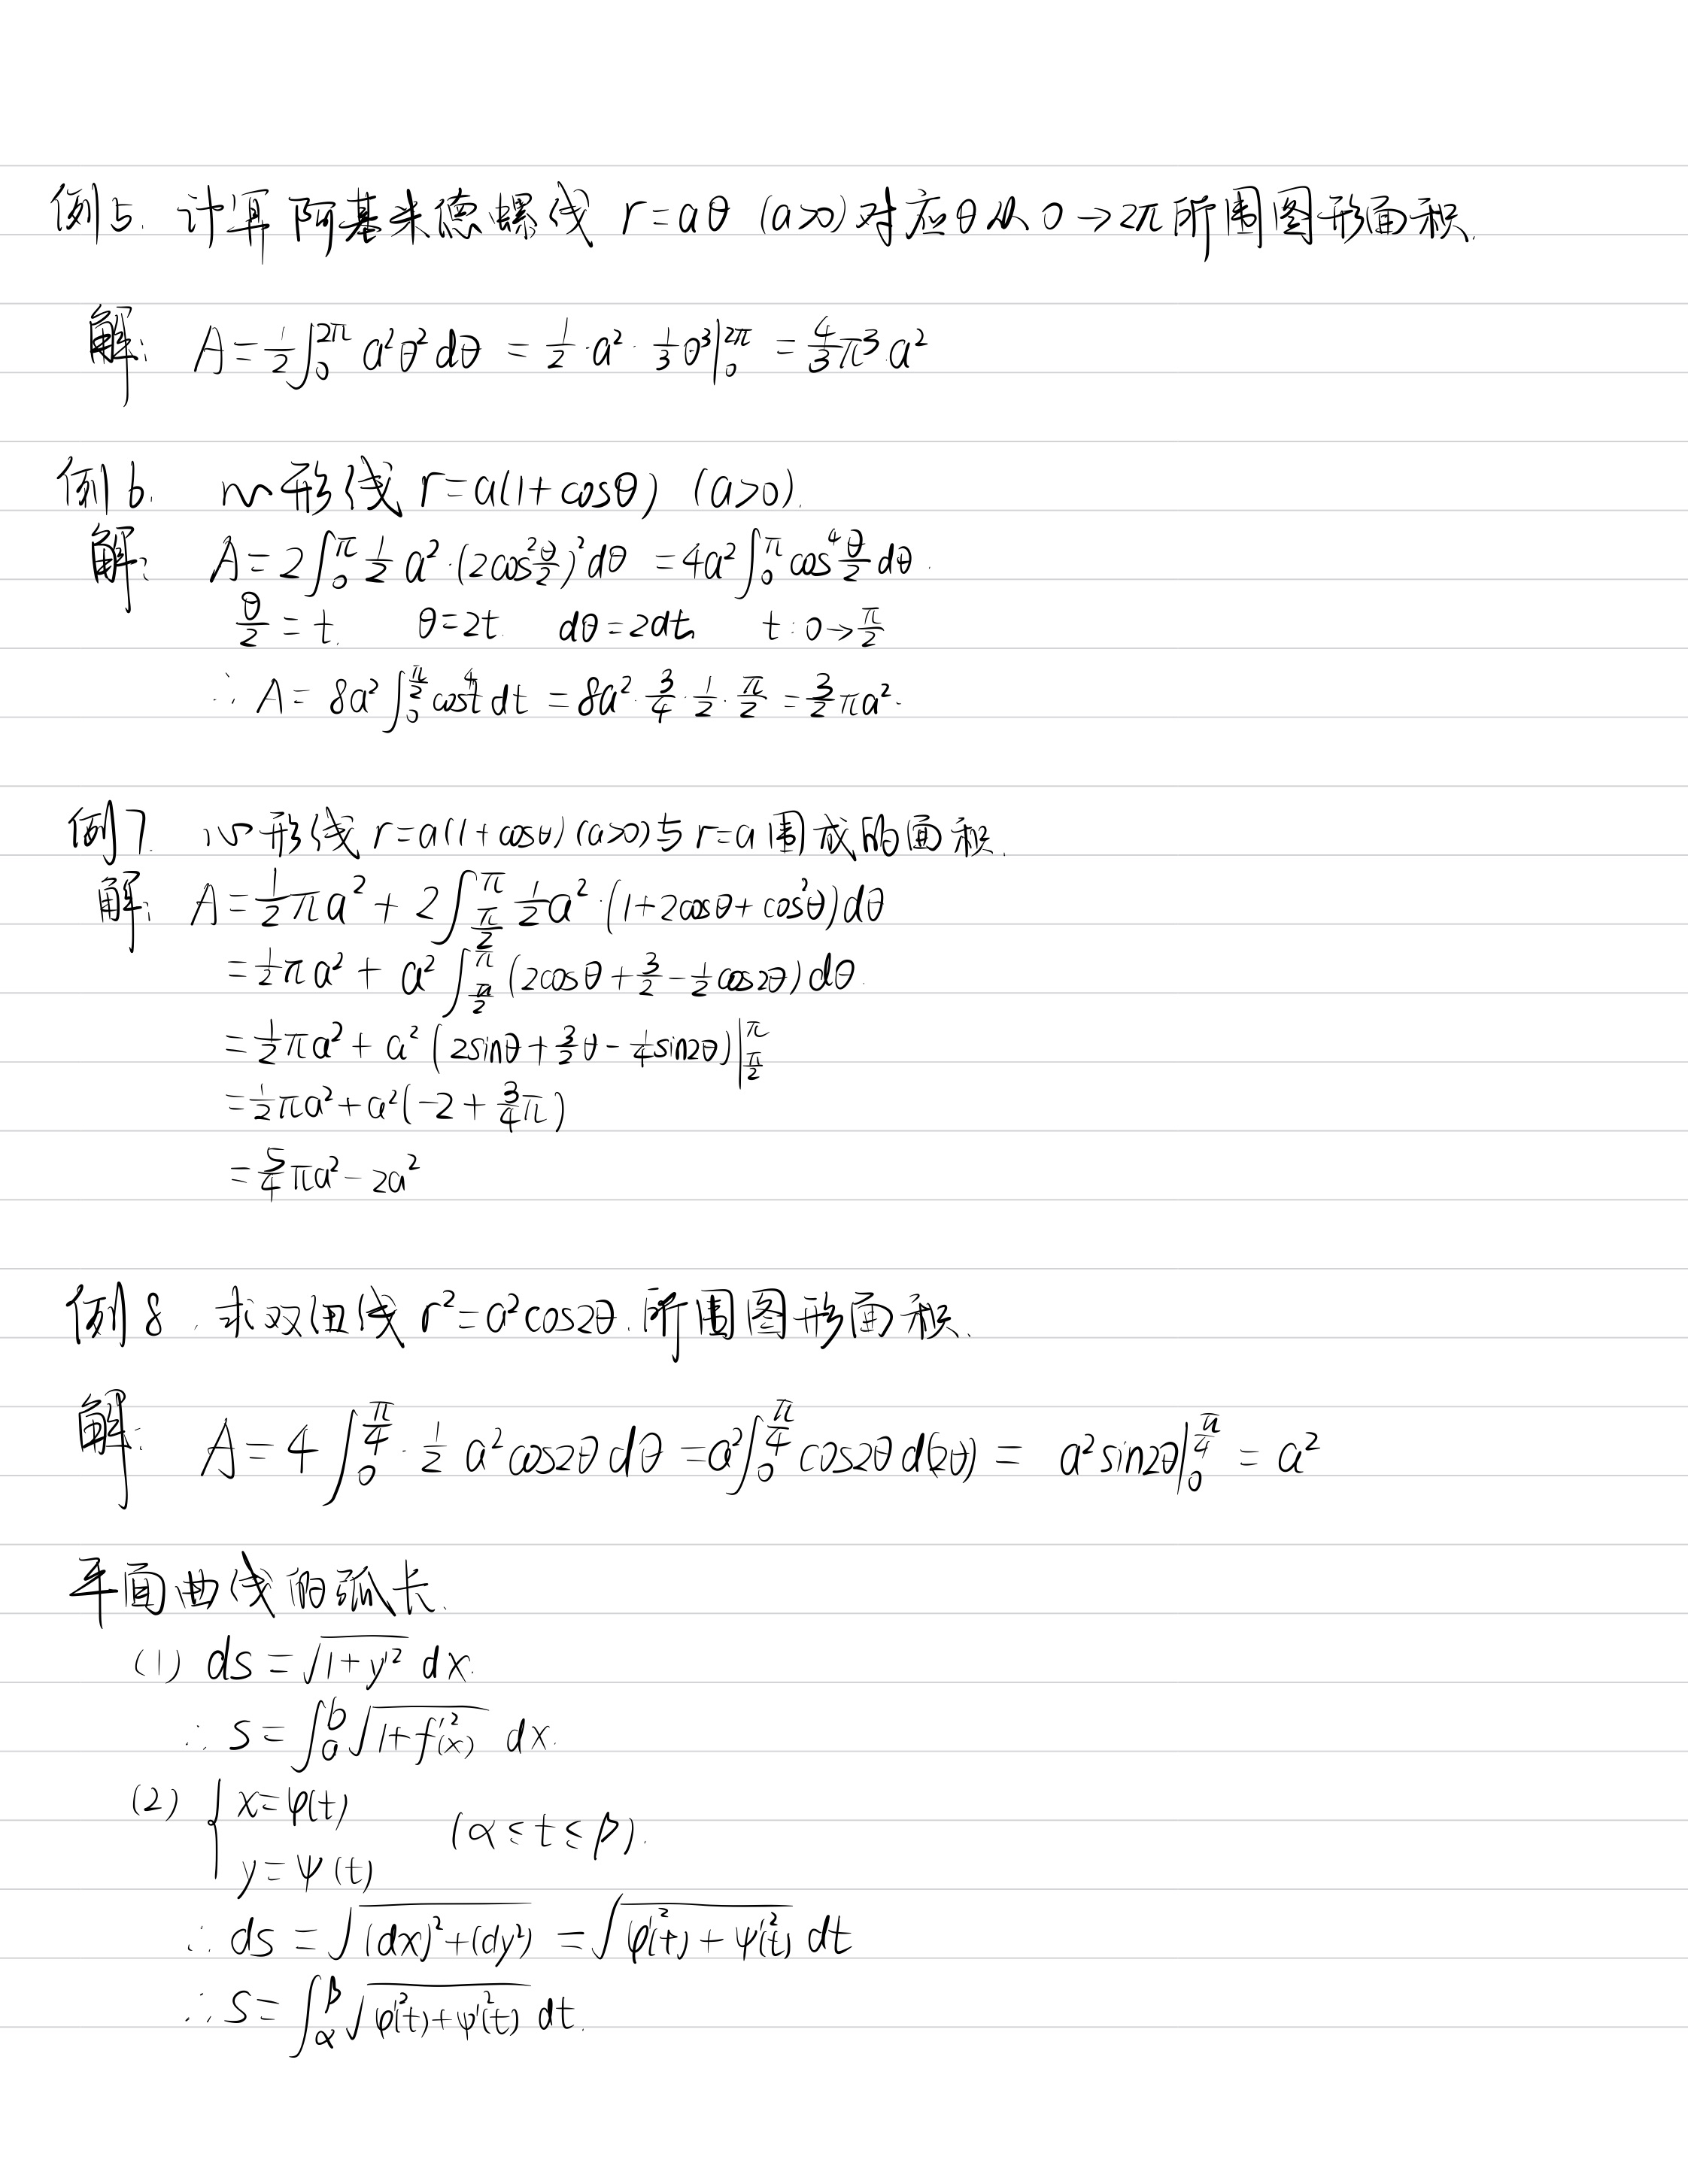 例5. 计算阿基米德螺线 r=aθ (a>0) 对应θ从0→2π所围图形面积.
解: A=½∫₀^{2π} a²θ²dθ = ½·a²·⅓θ³|₀^{2π} = 4/3 π³a²
例6. 心形线 r=a(1+cosθ) (a>0).
解: A=2∫₀^π ½a²·(2cos²θ/2)²dθ = 4a²∫₀^π cos⁴θ/2 dθ.
θ/2=t. θ=2t. dθ=2dt, t:0→π/2
∴ A= 8a²∫₀^{π/2} cos⁴t dt = 8a²·¾·½·π/2 = 3/2 πa².
例7. 心形线 r=a(1+cosθ) (a>0)与r=a围成的面积.
解: A=½πa²+2∫_{π/2}^π ½a²·(1+2cosθ+cos²θ)dθ
=½πa²+a²∫_{π/2}^π (2cosθ+3/2-½cos2θ)dθ.
=½πa²+a²(2sinθ+3/2θ-¼sin2θ)|_{π/2}^π
=½πa²+a²(-2+¾π)
=5/4πa²-2a²
例8. 求双纽线 r²=a²cos2θ.所围图形面积.
解: A=4∫₀^{π/4}·½a²cos2θdθ=a²∫₀^{π/4}cos2θd(2θ)= a²sin2θ|₀^{π/4}=a²
平面曲线的弧长.
(1) ds=√(1+y'²) dx.
∴ S=∫_a^b √(1+f'²(x)) dx.
(2) { x=φ(t)
y=ψ(t) (α≤t≤β).
∴ ds=√((dx)²+(dy²)) =√(φ'²(t)+ψ'²(t)) dt
∴ S=∫_α^β √(φ'²(t)+ψ'²(t)) dt.